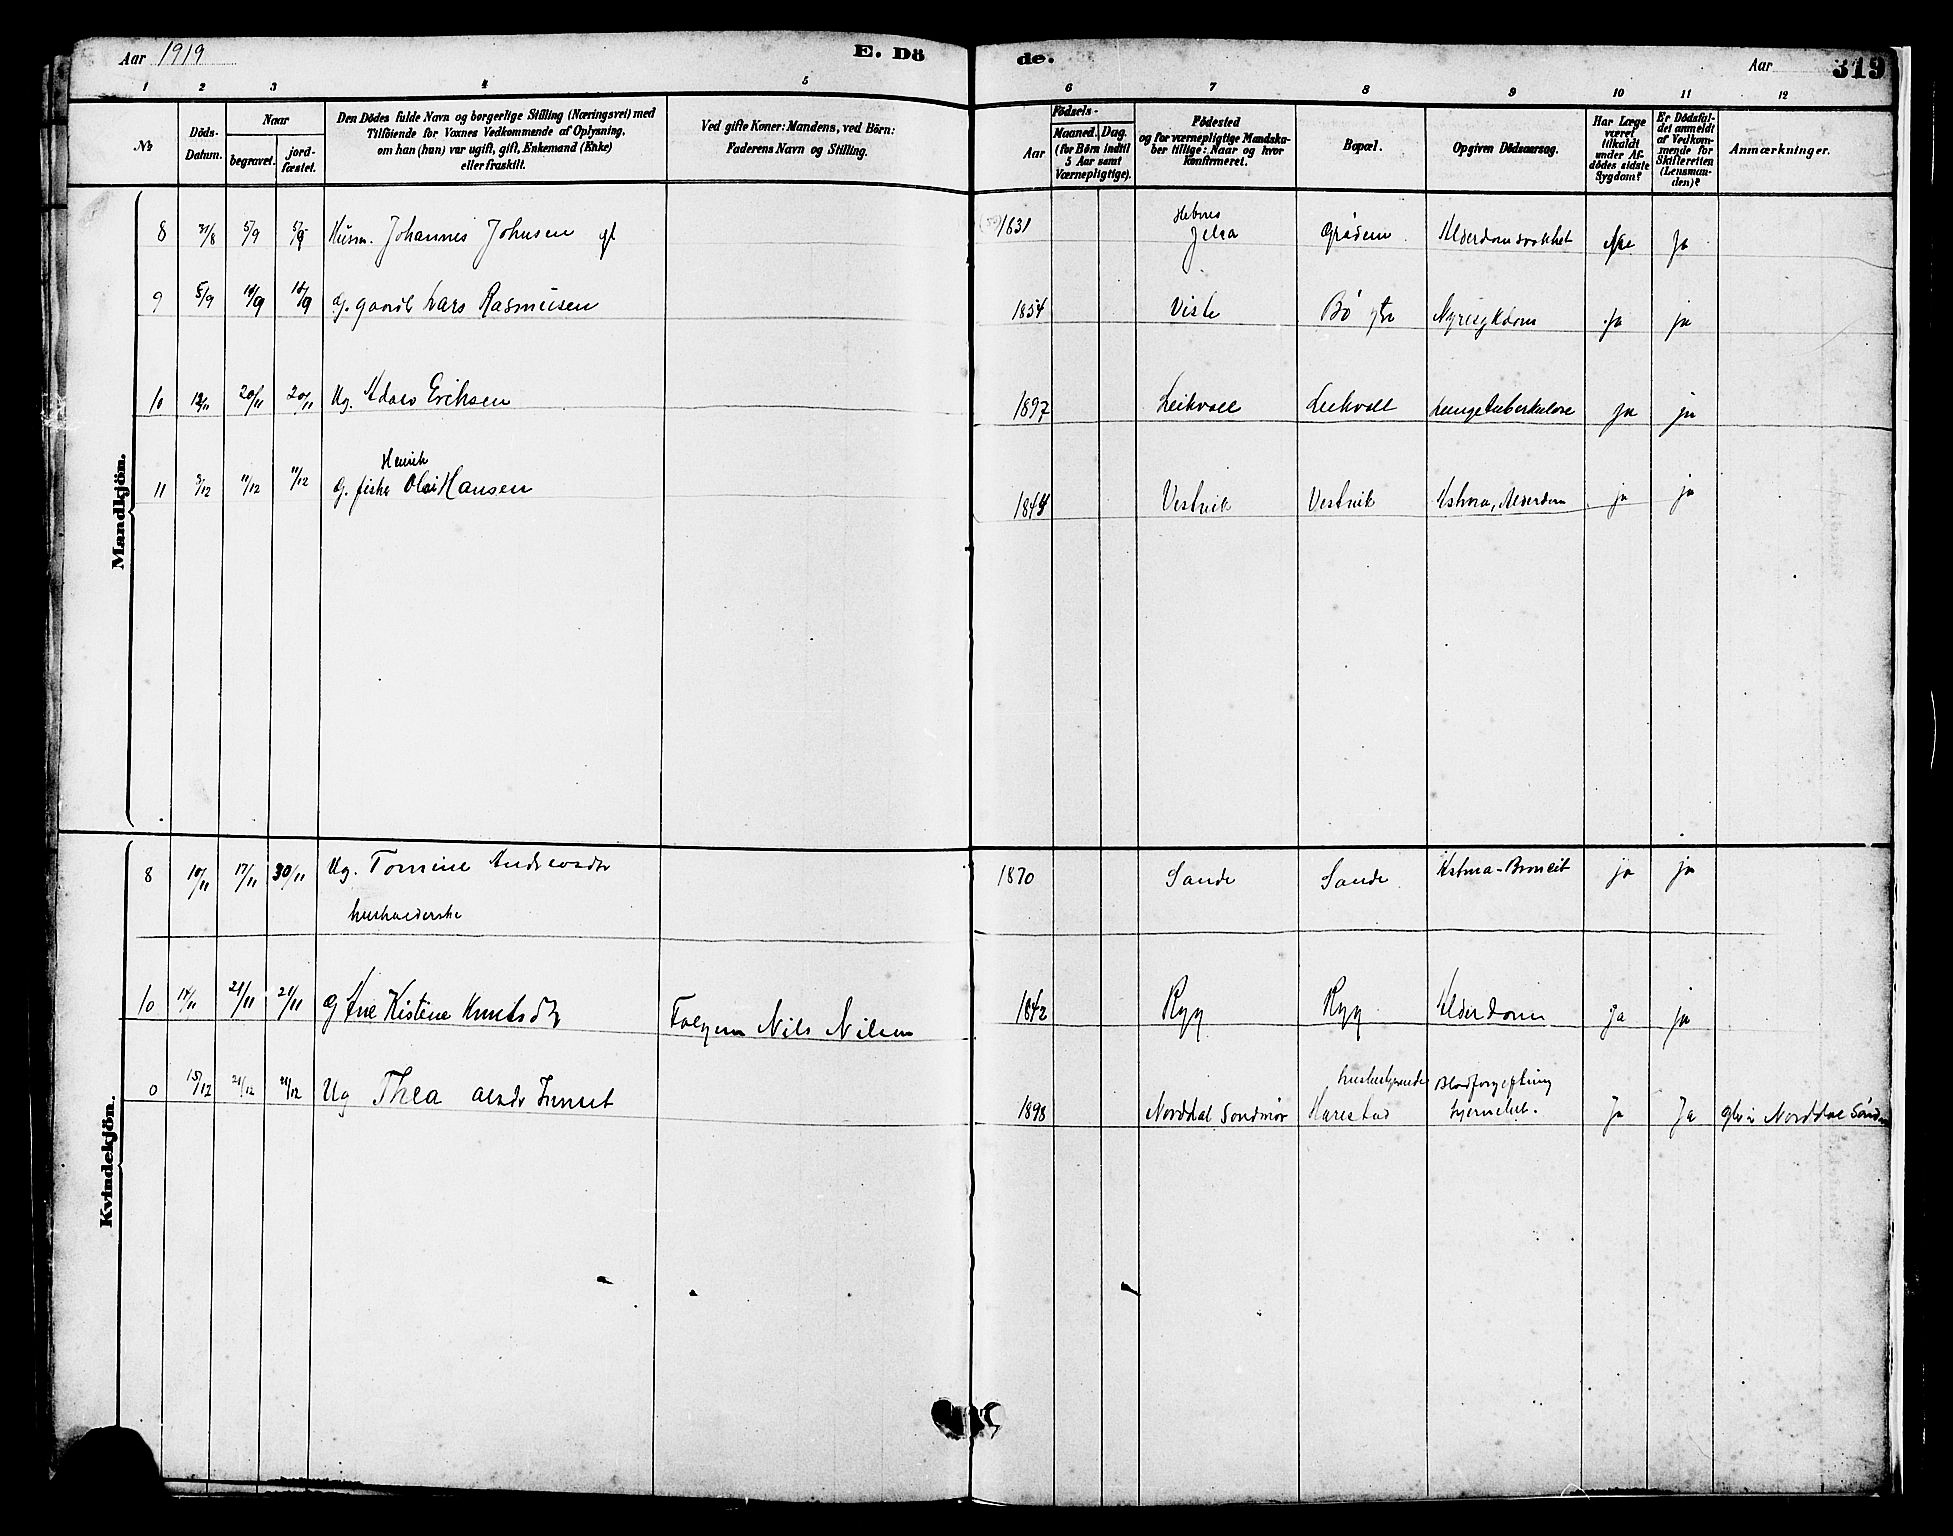 Aar 1919
E. Dö
de.
Aar
319
1 2 3 4 5 6 7 8 9 10 11 12
No
Döds-
Datum.
Naar
begravet.
jord-
fæstet.
Den Dödes fulde Navn og borgerlige Stilling (Næringsvei) med
Tilföiende for Voxnes Vedkommende af Oplysning,
om han (hun) var ugift, gift, Enkemand (Enke)
eller fraskilt.
Ved gifte Koner: Mandens, ved Börn:
Faderens Navn og Stilling.
Födsels-
Aar
Maaned. Dag.
(for Börn indtil
5 Aar samt
Værnepligtige).
Födested
og for værnepligtige Mandska-
ber tillige: Naar og hvor
konfirmeret.
Bopæl.
Opgiven Dödsaarsag.
Har Læge
været
tilkaldt
under Af-
dödes sidste
Sygdom?
Er Dödsfal-
det anmeldt
af Vedkom-
mende for
Skifteretten
(Lensman-
den)?
Anmærkninger.
Mandkjön.
Hebnes
8 31/8 5/9 5/9 Husm. Johannes Johnsen gl 1831 Jelsa Grødem Alderdomssvakhet Nei Ja
9 5/9 14/9 14/9 g. gaardb Lars Rasmussen 1854 Viste Bø Nyresykdom Ja ja
10 12/11 20/11 20/11 Ug. Adolv Eriksen 1897 Leikvoll Leikvoll Lungetuberkulose ja ja
Henrik
11 3/12 11/12 11/12 g. fisker Olai Hansen 1844 Vestvik Vestvik Astma, Alderdom ja ja
Kvindekjön.
8 10/11 17/11 30/11 Ug. Tomine Andreasdtr 1870 Sande Sande Astma-Bronkit ja ja
husholderske
10 14/11 21/11 21/11 g Ane Kistine Knutsdtr Folgem Nils Nilsen 1842 Ryg Ryg Alderdom ja ja
husbestyrende Blodforgiftning
0 15/12 21/12 21/12 Ug Thea 1898 Norddal Søndmør Harestad hjernebet. Ja Ja i Norddal Sønd